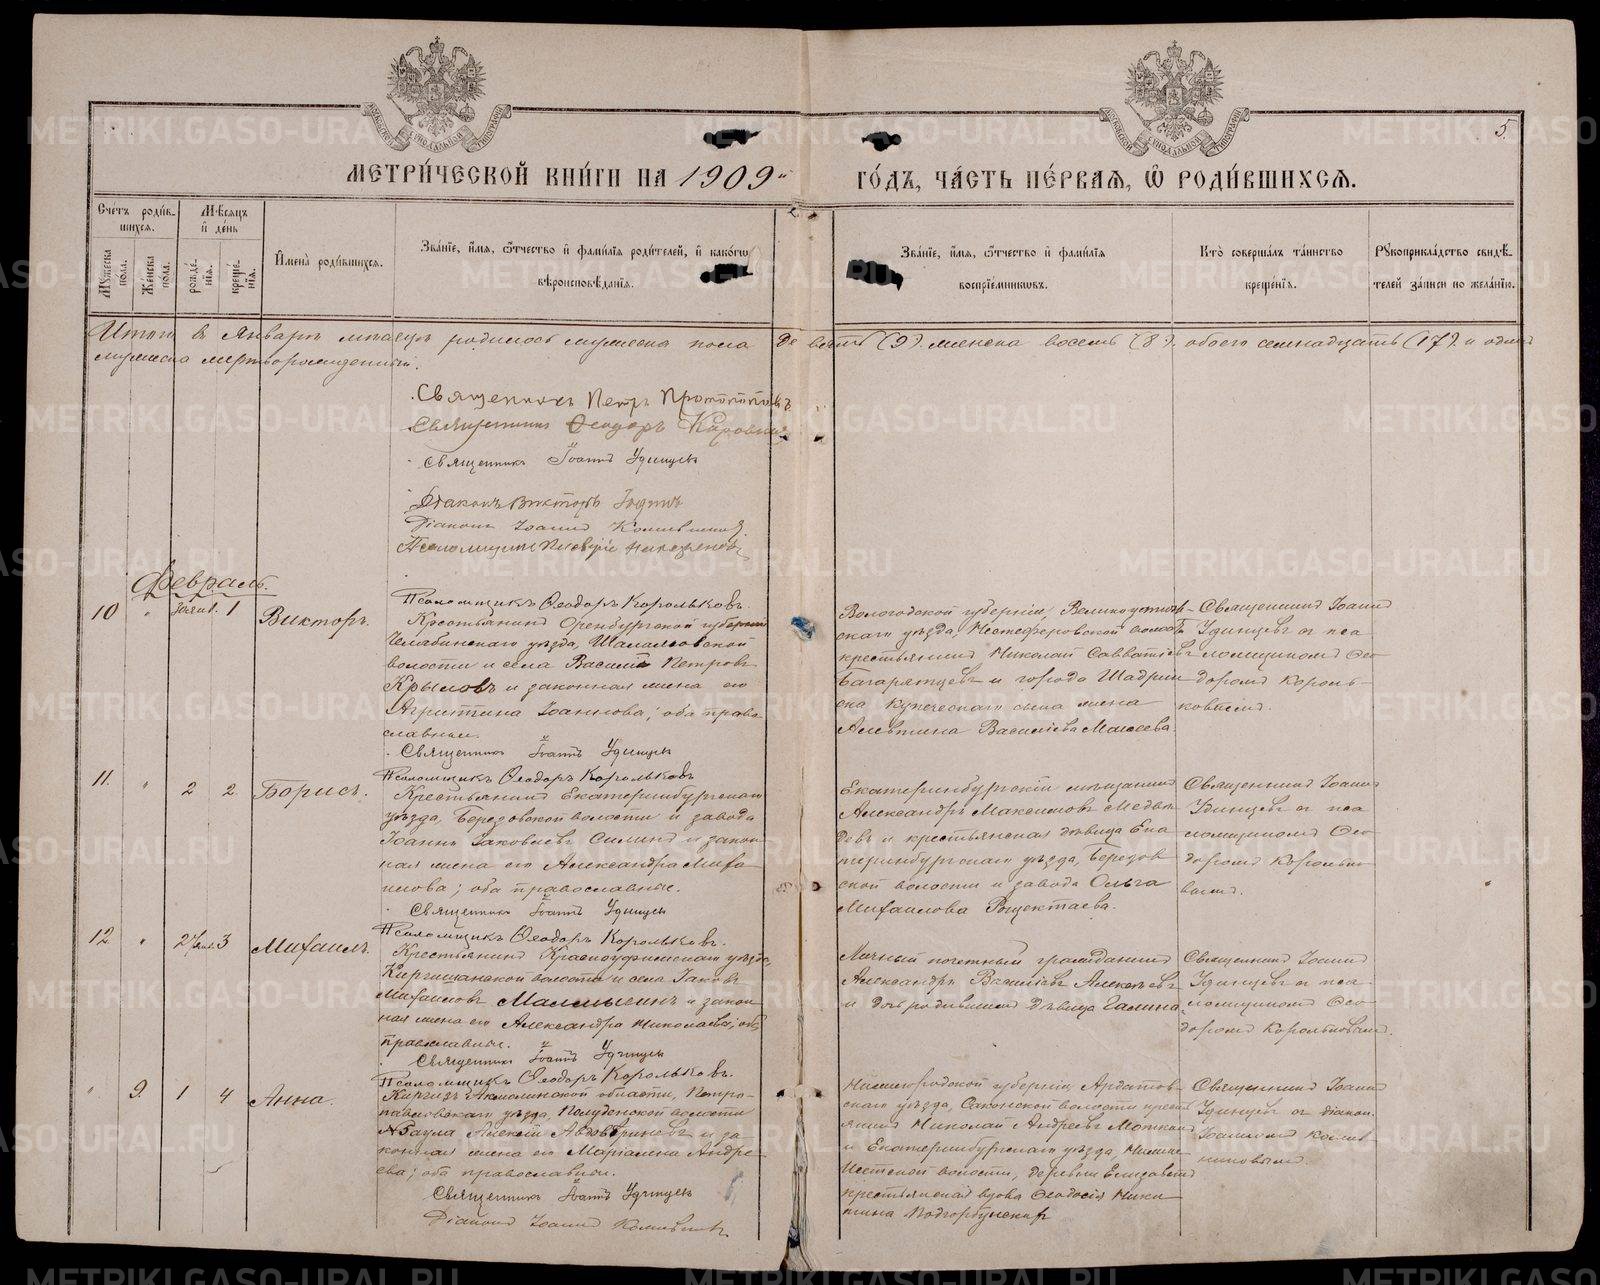 5.
МЕТРИ́ЧЕСКОЙ КНИ́ГИ НА 1909й ГО́ДЪ, ЧА́СТЬ ПЕ́РВАЯ, Ѡ РОДИ́ВШИХСЯ.
Сче́тъ роди́вшихся.
Мѣ́сяцъ и҆ де́нь
Му́жеска по́ла.
Же́нска по́ла.
рожде́нїя.
креще́нїя.
И҆мена̀ роди́вшихся.
Зва́нїе, и҆́мя, ѻ҆́тчество и҆ фами́лїя роди́телей, и҆ како́гѡ
вѣроисповѣ́данїя.
Зва́нїе, и҆́мя, ѻ҆́тчество и҆ фами́лїя
воспрїе́мниковъ.
Кто̀ соверша́лъ та́инство
креще́нїя.
Рꙋкоприкла́дство свидѣ́-
телей за́писи по жела́нїю.
Итого в Январѣ мѣсяцѣ родилось мужеска пола девять (9) женска восемь (8). обоего семнадцать (17). и одинъ
мужеска мертворожденный.
Священникъ Петръ Протопоповъ
Священникъ Ѳеодоръ Коровинъ
Священникъ Іоаннъ Удинцев
Діаконъ Викторъ
Діаконъ Іоаннъ
Псаломщикъ
Февраль.
10 " 30 янв. 1 Викторъ.
Псаломщикъ Ѳеодоръ Корольковъ.
Крестьянинъ Оренбургской губерніи
Челябинскаго уѣзда,
волости и села Василій Петровъ
Крыловъ и законная жена его
Агриппина Іоаннова; оба право-
славные.
Священникъ Іоаннъ Удинцев
Псаломщикъ Ѳеодоръ Корольковъ
Вологодской губерніи, Великоустюж-
скаго уѣзда, Нестеферовской волости
крестьянинъ Николай Савватіевъ
Багарятцевъ и города Шадрин-
ска купеческаго сына жена
Алевтина Васильева Моисеева.
Священникъ Іоаннъ
Удинцевъ съ пса-
ломщикомъ Ѳео-
доромъ Король-
ковымъ.
11. " 2 2 Борисъ.
Крестьянинъ Екатеринбургскаго
уѣзда, Березовской волости и завода
Іоаннъ Іаковлевъ Силинъ и закон-
ная жена его Александра Миха-
илова; оба православные.
Священникъ Іоаннъ Удинцев
Псаломщикъ Ѳеодоръ Корольковъ.
Екатеринбургскій мѣщанинъ
Александръ Максимовъ Медвѣ-
девъ и крестьянская дѣвица Ека-
теринбургскаго уѣзда, Березов-
ской волости и завода Ольга
Михаилова
Священникъ Іоаннъ
Удинцевъ съ пса-
ломщикомъ Ѳео-
доромъ Корольков-
вымъ.
12 " 27 янв. 3 Михаилъ.
Крестьянинъ Красноуфимскаго уѣзда,
Киргишанской волости и села Іаковъ
Михаиловъ и закон-
ная жена его Александра Николаева; оба
православные.
Священникъ Іоаннъ Удинцев
Псаломщикъ Ѳеодоръ Корольковъ.
Личный почетный гражданинъ
Александръ Васильевъ Алексѣевъ
и дѣвица Галина
Священникъ Іоаннъ
Удинцевъ съ пса-
ломщикомъ Ѳео-
доромъ Корольковымъ.
" 9. 1 4 Анна.
Киргизъ Акмолинской области, Петро-
павловскаго уѣзда, Полуденской волости
Аула Алексій и за-
конная жена его Маріамна Андре-
ева; оба православные.
Священникъ Іоаннъ Удинцев
Діаконъ Іоаннъ
Нижегородской губерніи, Ардатов-
скаго уѣзда, Саконской волости крест-
янинъ Николай Андреевъ
и Екатеринбургскаго уѣзда, Нижне-
Исетской волости, деревни Елизавета
крестьянская вдова Ѳеодосія Ники-
тина
Священникъ Іоаннъ
Удинцевъ съ діакон.
Іоанномъ
METRIKI.GASO-URAL.RU